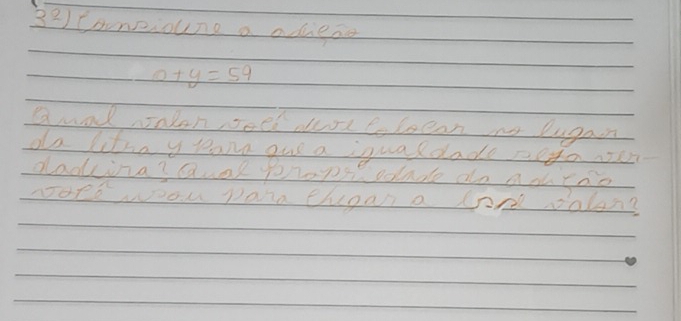 3º) Considere a adição
0+y=59
Qual valor você deve colocar no lugar
da letra y para que a igualdade seja ver-
dadeira? Qual propriedade da adição
você usou para chegar a esse valor?